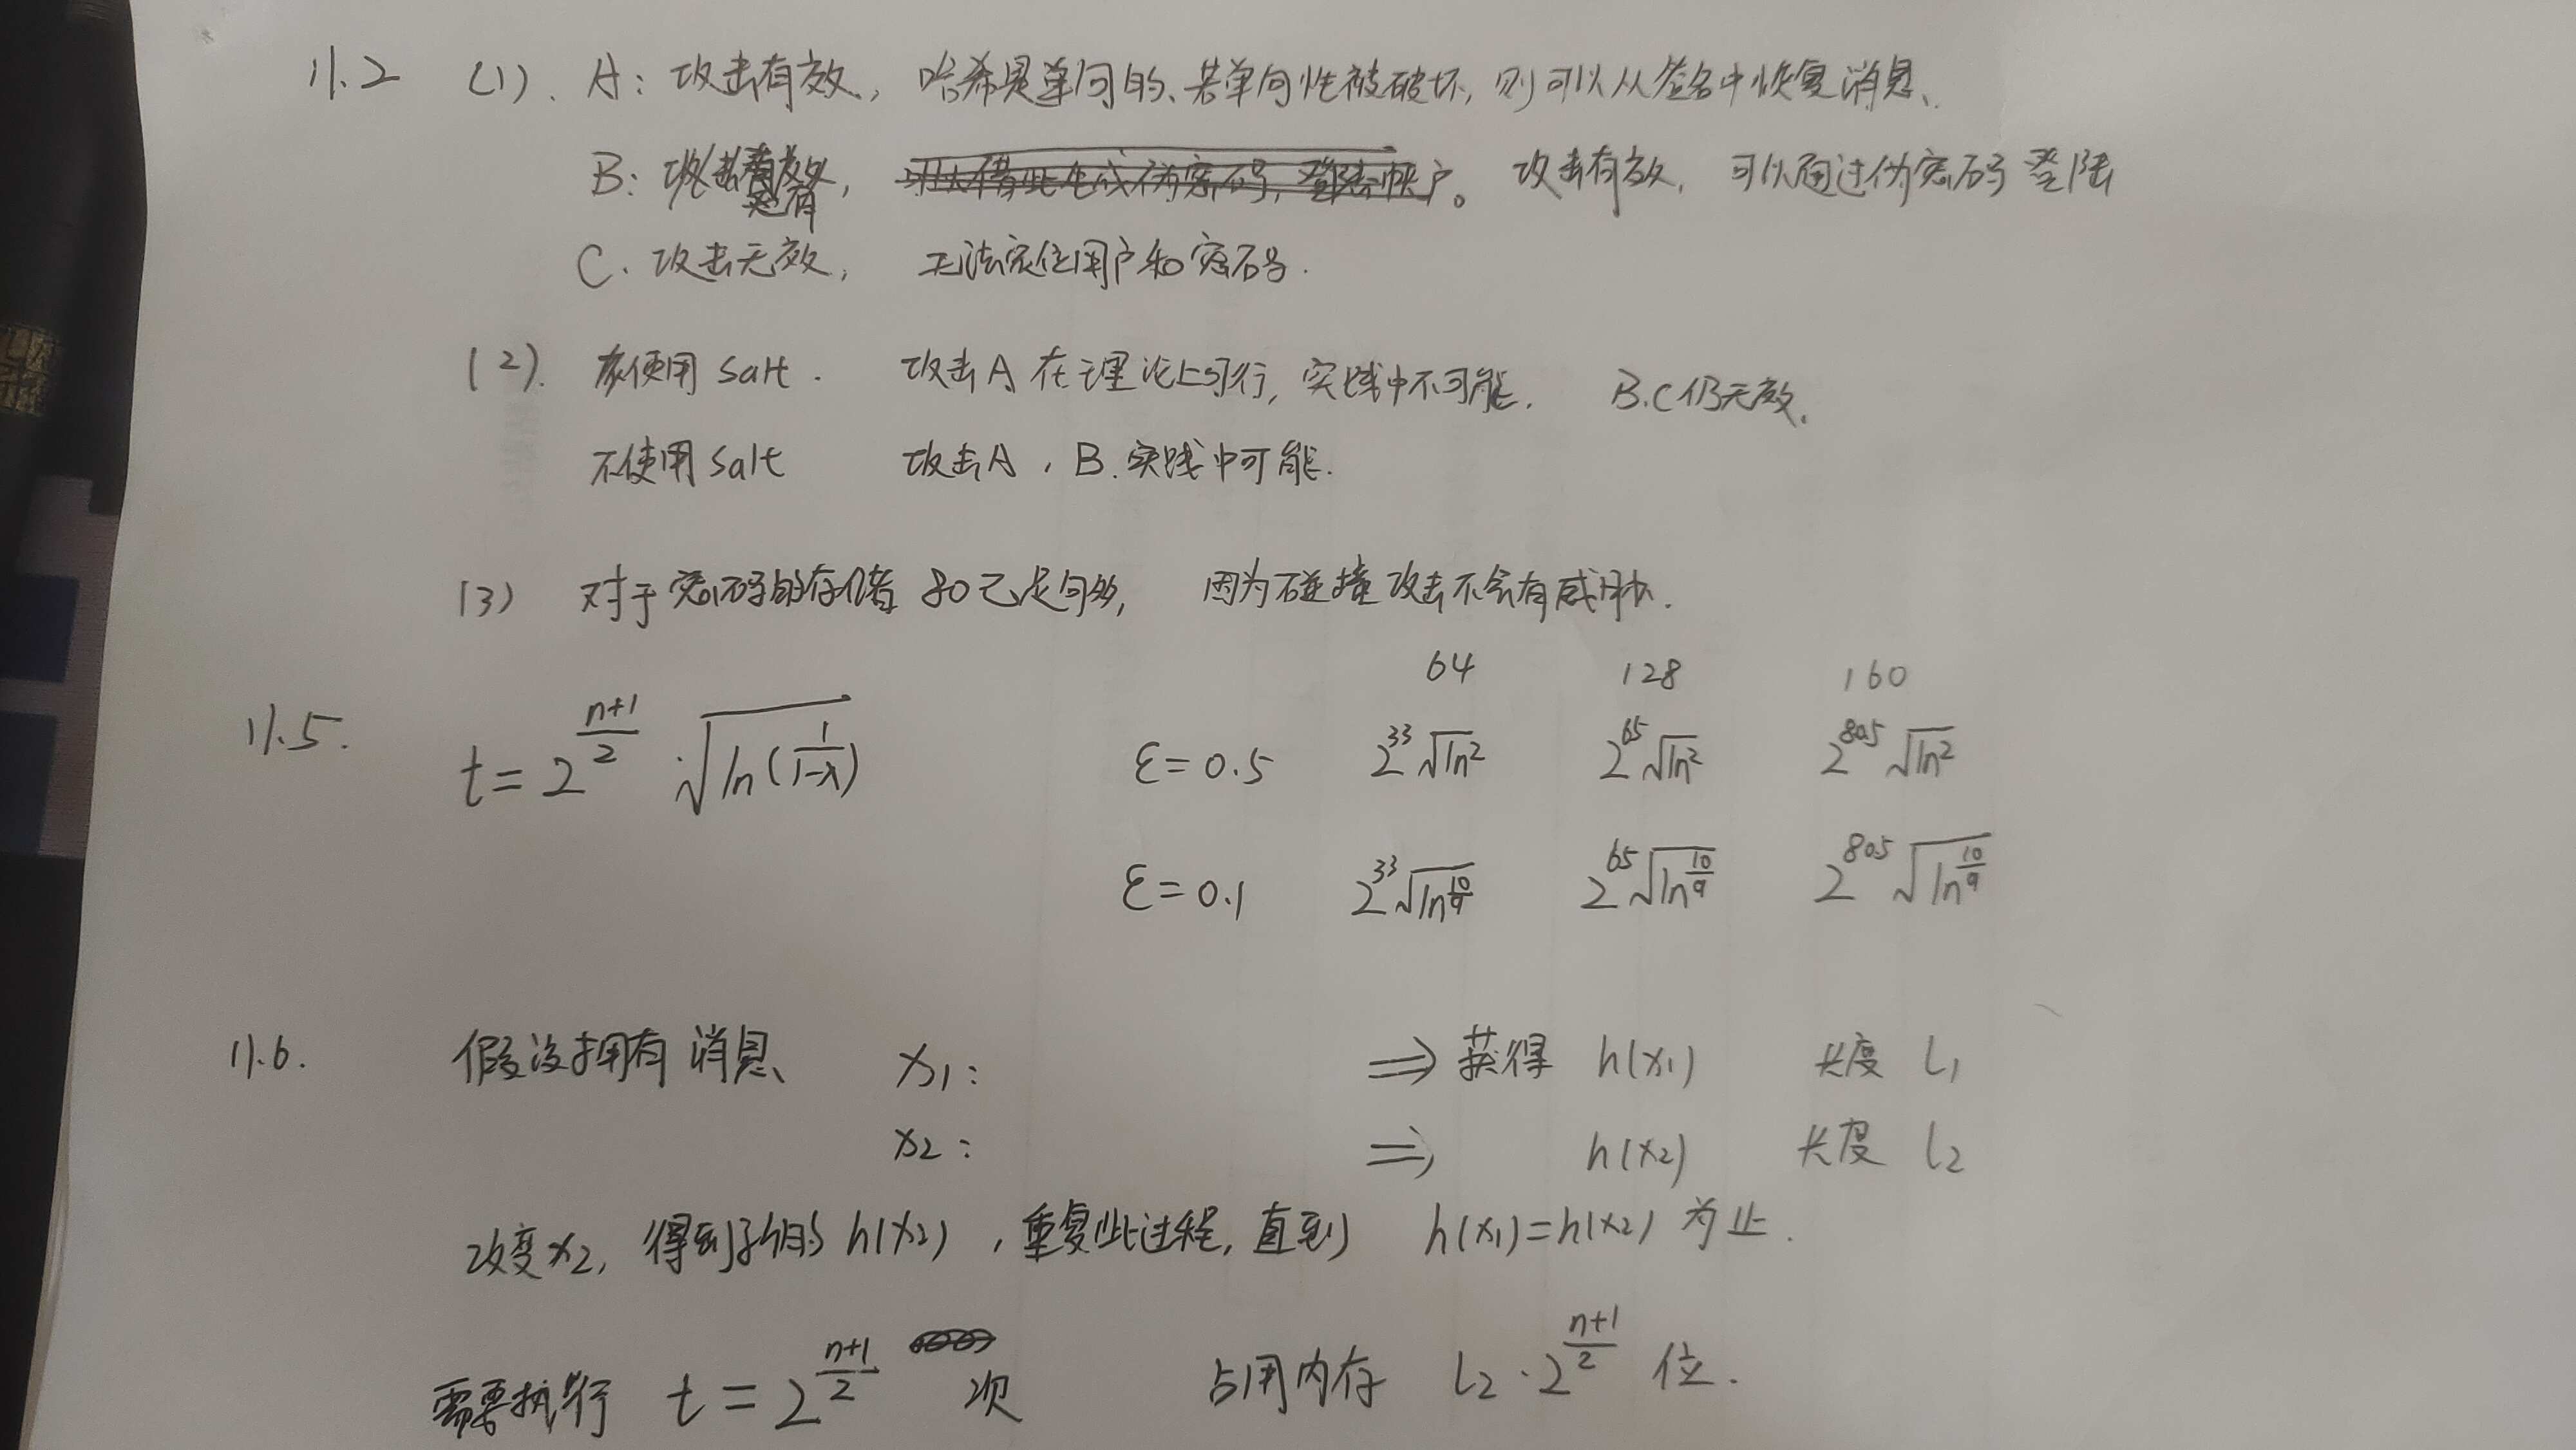 11.2 (1). A: 攻击有效, 哈希是单向的、若单向性被破坏, 则可以从签名中恢复消息、
B: 攻击, 攻击有效, 可以通过伪密码登陆
C. 攻击无效, 无法定位用户和密码.
(2). 使用 salt. 攻击A 在理论上可行, 实践中不可能. B.C仍无效.
不使用 salt 攻击A, B. 实践中可能.
(3) 对于密码的存储 80已足够, 因为碰撞攻击不会有威胁.
64 128 160
11.5. t = 2^{\frac{n+1}{2}} \sqrt{ln(\frac{1}{1-λ})} ε = 0.5 2^{33}\sqrt{ln2} 2^{65}\sqrt{ln2} 2^{80.5}\sqrt{ln2}
ε = 0.1 2^{33}\sqrt{ln\frac{10}{9}} 2^{65}\sqrt{ln\frac{10}{9}} 2^{80.5}\sqrt{ln\frac{10}{9}}
11.6. 假设拥有消息、 x1: ⇒ 获得 h(x1) 长度 l1
x2: ⇒ h(x2) 长度 l2
改变x2, 得到新的 h(x2), 重复此过程, 直到 h(x1)=h(x2) 为止.
需要执行 t = 2^{\frac{n+1}{2}} 次 占用内存 l2 · 2^{\frac{n+1}{2}} 位.